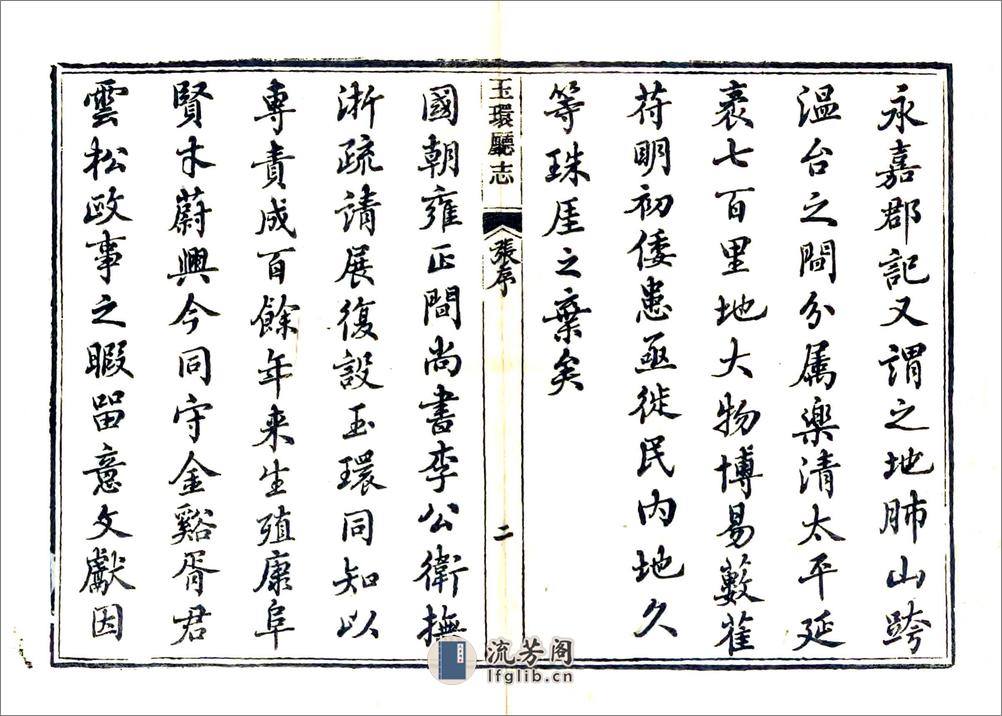 永嘉郡記又謂之地肺山跨
溫台之間分属樂清太平延
袤七百里地大物博易藪萑
苻明初倭患亟徙民内地久
等珠厓之棄矣
玉環廳志
張序
二
國朝雍正間尚書李公衛撫
浙疏請展復設玉環同知以
專責成百餘年来生殖康阜
賢才蔚興今同守金谿胥君
雲松政事之暇留意文獻因
流芳阁
lfglib.cn